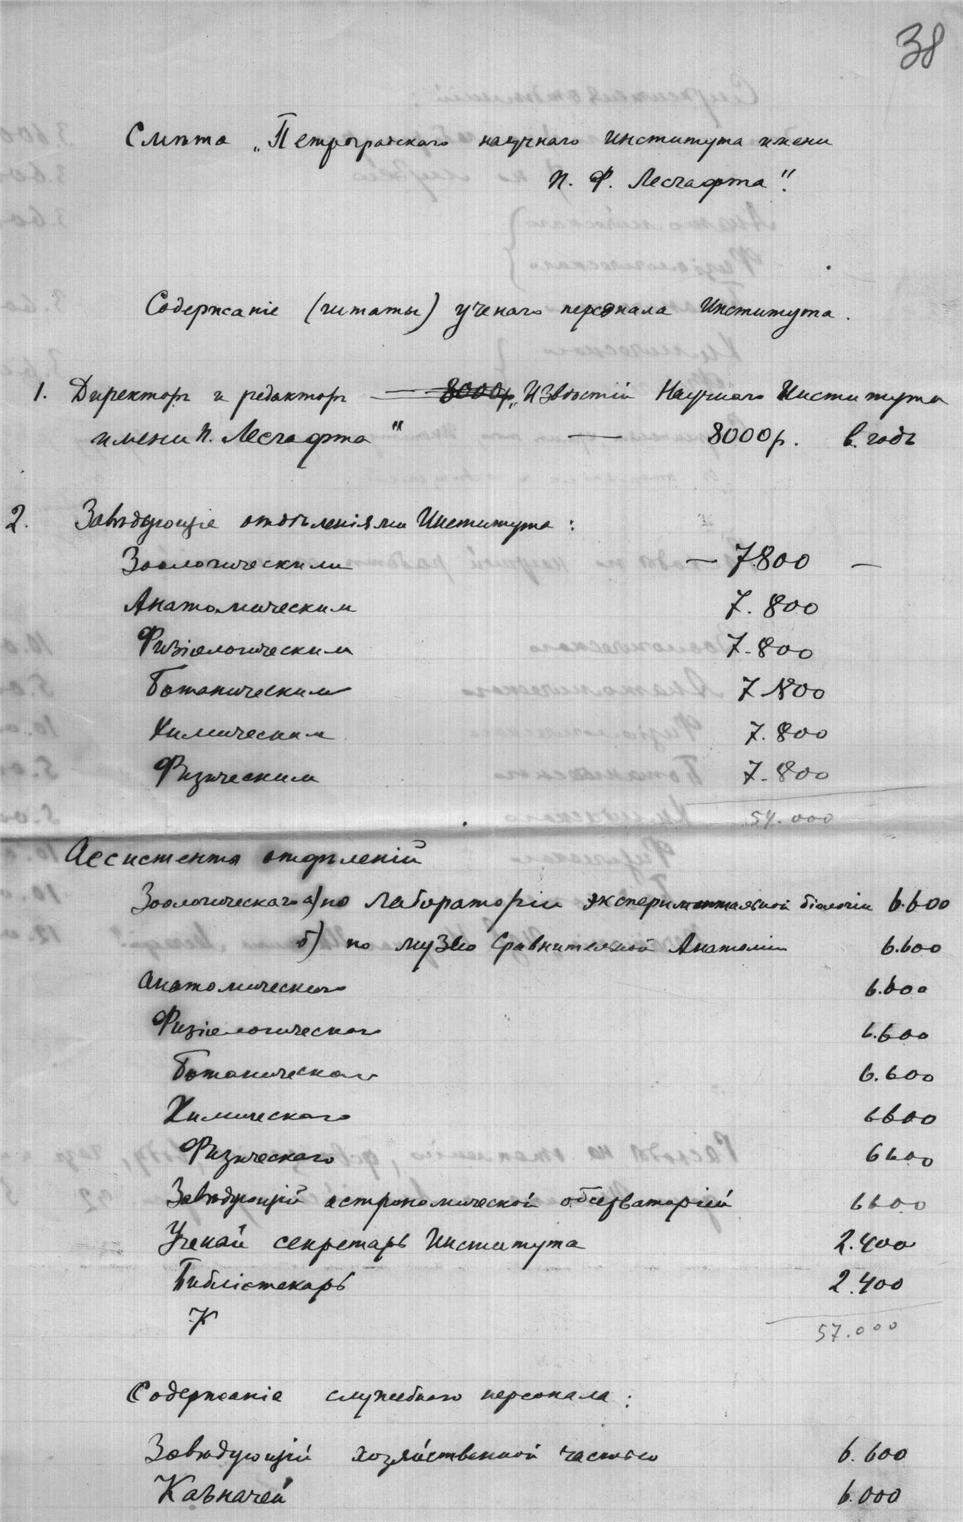 38
Смѣта „Петроградскаго научнаго Института имени
П. Ф. Лесгафта".
Содержаніе (штаты) ученаго персонала Института.
1. Директоръ и редакторъ — 8000р. „Извѣстій Научнаго Института
имени П. Лесгафта" — 8000р. в годъ
2. Завѣдующіе отдѣленіями Института:
Зоологическимъ — 7.800 —
Анатомическим 7.800
Физіологическим 7.800
Ботаническим 7800
Химическим 7.800
Физическим 7.800
54.000
Ассистенты отдѣленій
Зоологическаго а) по Лабораторіи экспериментальной біологіи 6.600
б) по музею Сравнительной Анатоміи 6.600
Анатомическаго 6.600
Физіологическаго 6.600
Ботаническаго 6.600
Химическаго 6600
Физическаго 6600
Завѣдующій астрономической обсерваторіей 6600
Ученый секретарь Института 2.400
Библіотекарь 2.400
К
57.000
Содержаніе служебнаго персонала:
Завѣдующій хозяйственной частью 6.600
Казначей 6.000